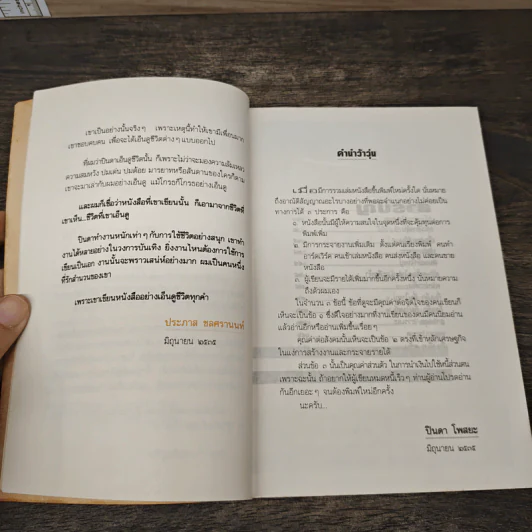 เขาเป็นอย่างนั้นจริงๆ เพราะเหตุนี้ทำให้เขามีเพื่อนมาก
เขาชอบคบคน เพื่อจะได้เอ็นดูชีวิตต่างๆ แบบออกไป
ที่ผมว่าปินดาเอ็นดูชีวิตนั้น ก็เพราะไม่ว่าจะมองความล้มเหลว
ความสมหวัง ปมเด่น ปมด้อย มารยาทหรือสันดานของใครก็ตาม
เขาจะมาเล่ากับผมอย่างเอ็นดู แม้โกรธก็โกรธอย่างเอ็นดู
และผมก็เชื่อว่าหนังสือที่เขาเขียนนั้น ก็เอามาจากชีวิตที่
เขาเห็น..ชีวิตที่เขาเอ็นดู
ปินดาทำงานหนักเท่าๆ กับการใช้ชีวิตอย่างสนุก เขาทำ
งานได้หลายอย่างในวงการบันเทิง ยิ่งงานไหนต้องการใช้การ
เขียนเป็นเอก งานนั้นจะพราวเสน่ห์อย่างมาก ผมเป็นคนหนึ่ง
ที่รักสำนวนของเขา
เพราะเขาเขียนหนังสืออย่างเอ็นดูชีวิตทุกคำ
ประภาส ชลศรานนท์
มิถุนายน ๒๕๓๕
คำนำว้าวุ่น
การรวมเล่มหนังสือขึ้นพิมพ์ใหม่ครั้งใด นั่นหมาย
ถึงอาณัติสัญญาณอะไรบางอย่างที่พอจะจำแนกอย่างไม่ค่อยเป็น
ทางการได้ ๓ ประการ คือ
๑. หนังสือนั้นมีผู้ให้ความสนใจในจุดหนึ่งที่จะคุ้มทุนต่อการ
พิมพ์เพิ่ม
๒. มีการกระจายงานเพิ่มเติม ตั้งแต่คนเรียงพิมพ์ คนทำ
อาร์ตเวิร์ค คนเข้าเล่มหนังสือ คนส่งหนังสือ และคนขาย
หนังสือ
๓. ผู้เขียนจะมีรายได้เพิ่มมากขึ้นอีกครั้งหนึ่ง นั่นหมายความ
ถึงตัวผมเอง
ในจำนวน ๓ ข้อนี้ ข้อที่ดูจะมีคุณค่าต่อจิตใจของคนเขียนก็
เห็นจะเป็นข้อ ๑ ซึ่งดีใจอย่างมากที่งานเขียนของตนมีคนนิยมอ่าน
แล้วอ่านอีกหรืออ่านเพิ่มขึ้นเรื่อยๆ
คุณค่าต่อสังคมนั้นเห็นจะเป็นข้อ ๒ ตรงที่เข้าหลักเศรษฐกิจ
ในแง่การสร้างงานและกระจายรายได้
ส่วนข้อ ๓ นั้นเป็นคุณค่าส่วนตัว ในการนำเงินไปใช้หนี้ส่วนตน
เพราะฉะนั้น ถ้าอยากให้ผู้เขียนหมดหนี้เร็วๆ ท่านผู้อ่านโปรดอ่าน
กันอีกเยอะๆ จนต้องพิมพ์ใหม่อีกครั้ง
นะครับ...
ปินดา โพสยะ
มิถุนายน ๒๕๓๕